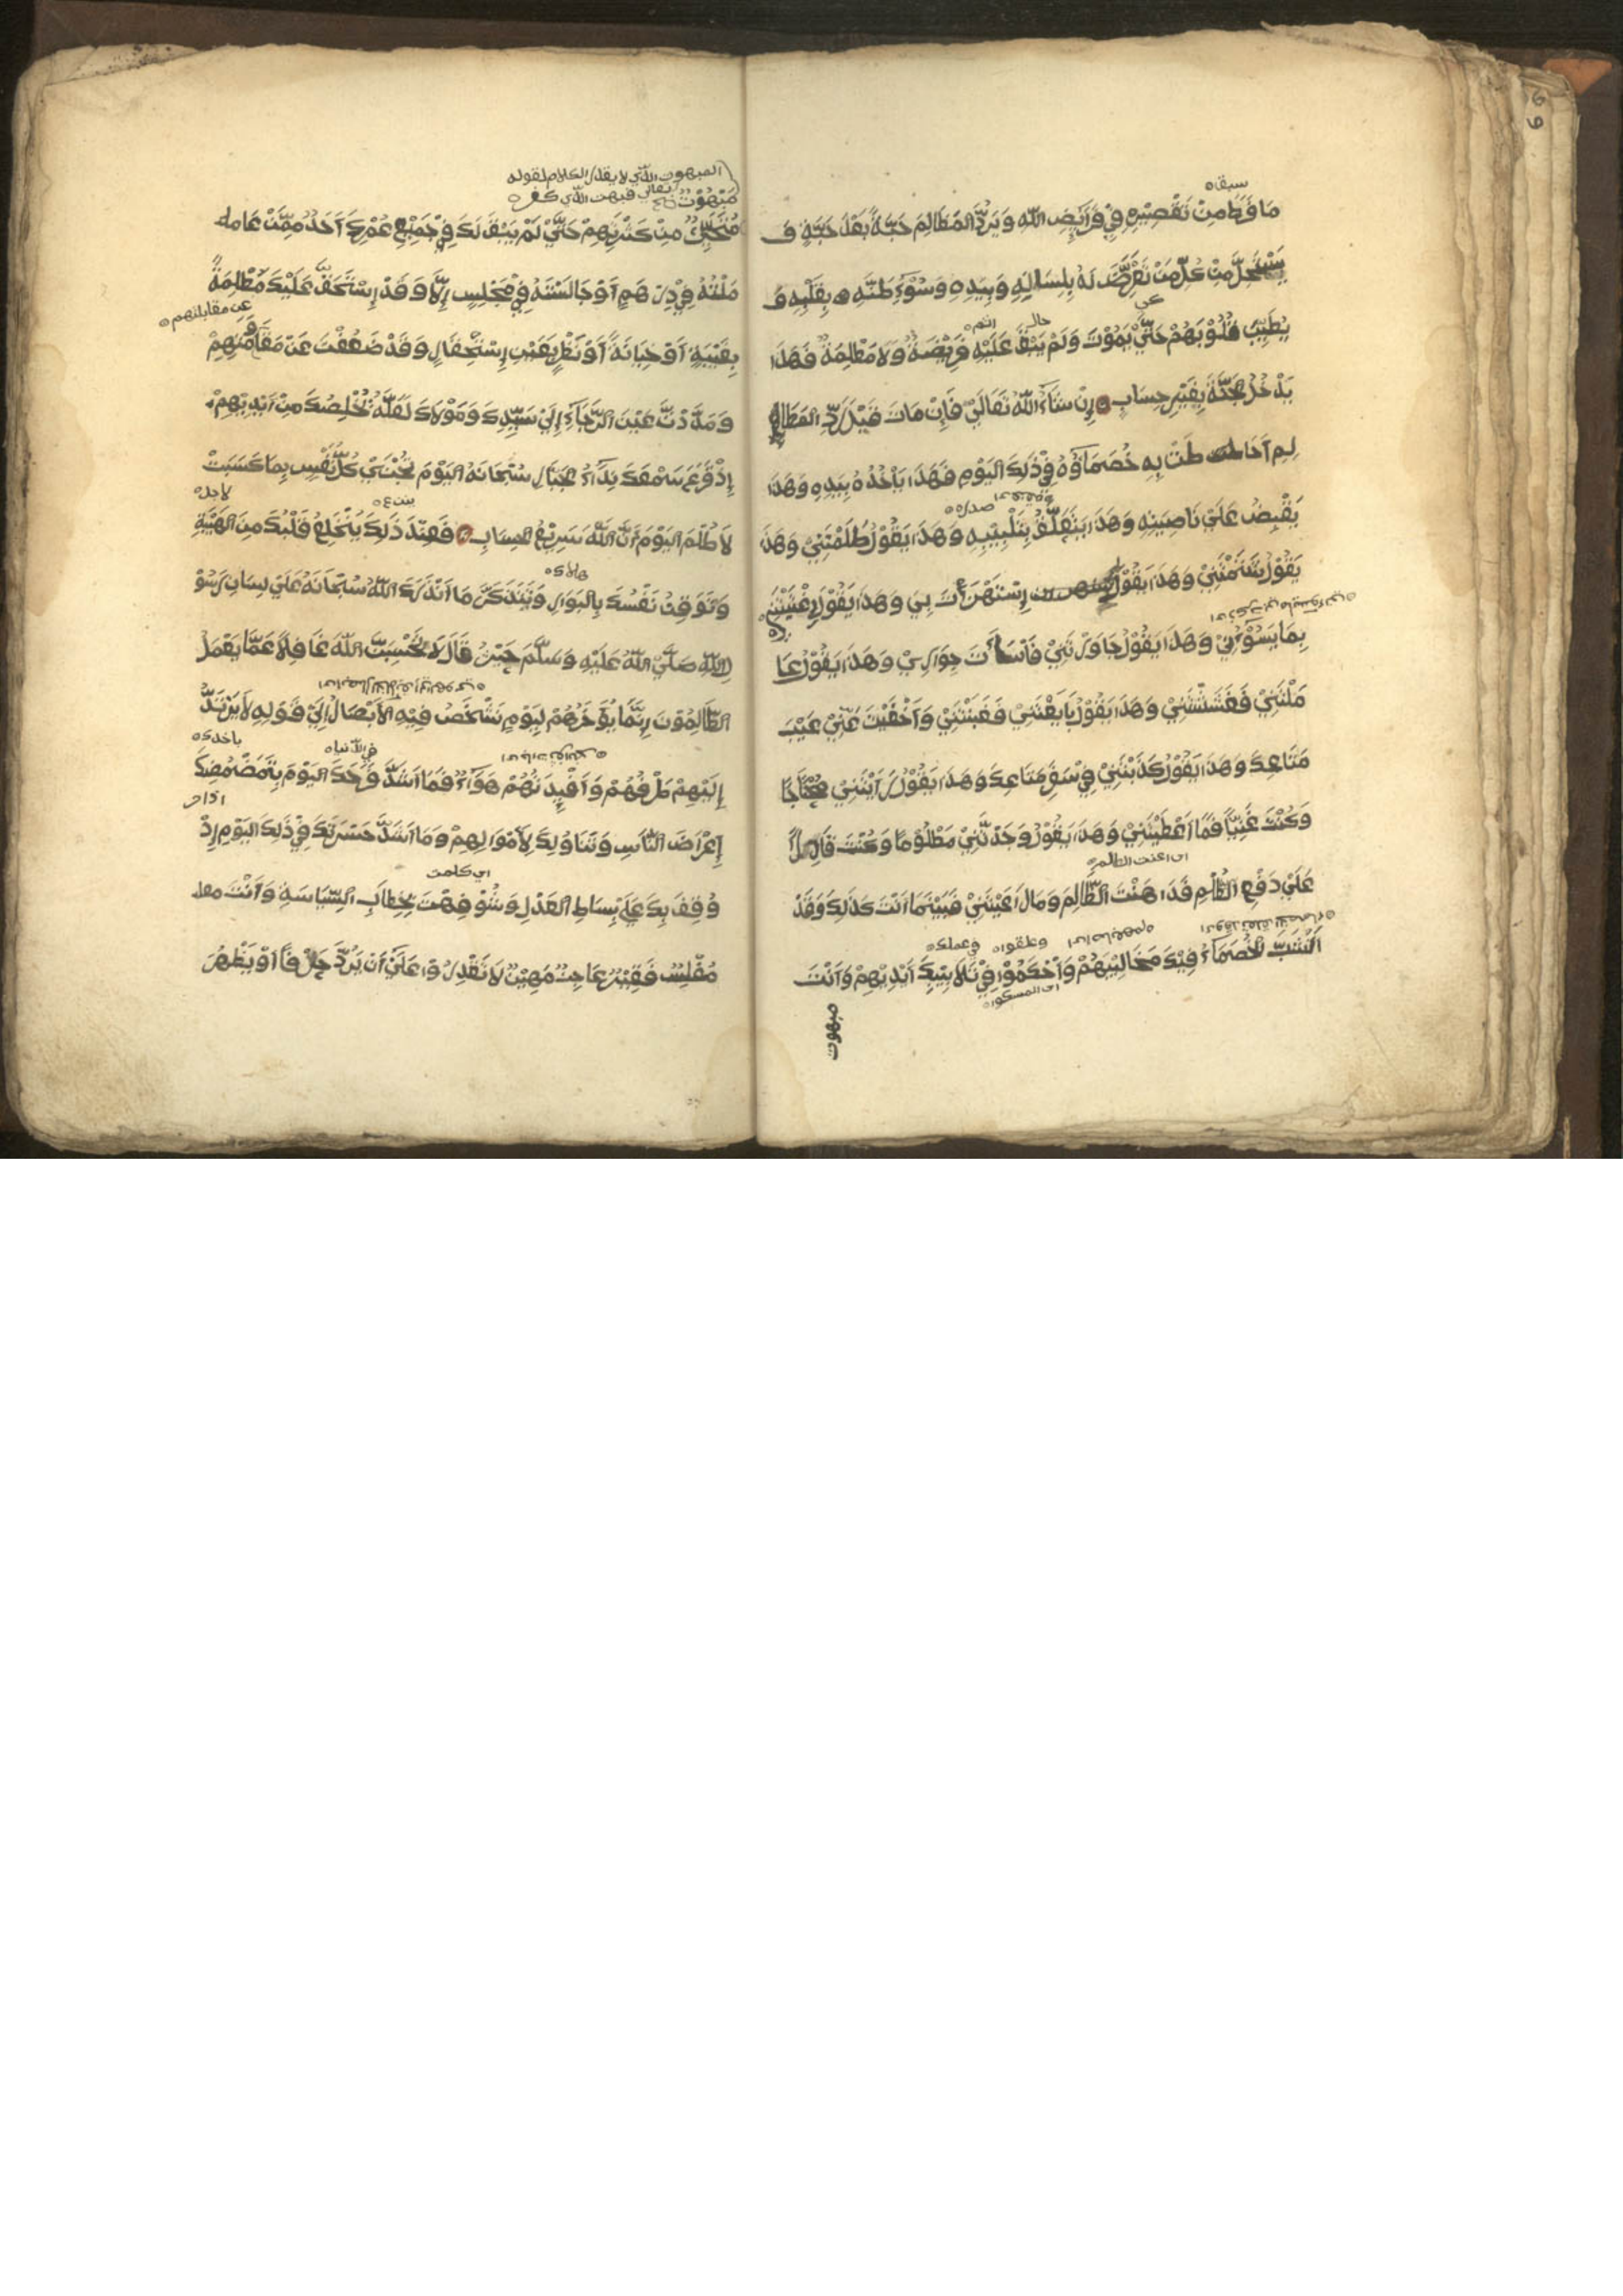 سبقه
مَا فَرَطَ مِنْ تَقْصِيْرِهِ فِيْ فَرَآئِضِ اللّٰهِ وَ يَرُدُّ المَظَالِمَ حَبَّةً بَعْدَ حَبَّةٍ وَ
يَسْتَحِلُّ مِنْ كُلِّ مَنْ تَعَرَّضَ لَهُ بِلِسَانِهِ وَ بِيَدِهِ وَ سُوْءِ ظَنِّهِ بِقَلْبِهِ وَ
كي
حال
يُطَيِّبُ قُلُوْبَهُمْ حَتَّيْ يَمُوْتَ وَ لَمْ يَبْقَ عَلَيْهِ فَرِيْضَةٌ وَ لَا مَظْلِمَةٌ فَهَذَا
يَدْخُلُ الجَنَّةَ بِغَيْرِ حِسَابٍ إِنْ شَآءَ اللّٰهُ تَعَالَيْ فَإِنْ مَاتَ قَبْلَ رَدِّ المَظَا
لِمِ أَحَاطَتْ بِهِ خُصَمَاؤُهُ فِيْ ذَلِكَ اليَوْمِ فَهَذَا يَأْخُذُهُ بِيَدِهِ وَ هَذَا
صدره
يَقْبِضُ عَلَيْ نَاصِيَتِهِ وَ هَذَا يَتَعَلَّقُ بِتَلْبِيْبِهِ وَ هَذَا يَقُوْلُ ظَلَمْتَنِيْ وَ هَذَا
يَقُوْلُ شَتَمْتَنِيْ وَ هَذَا يَقُوْلُ إِسْتَهْزَءْتَ بِيْ وَ هَذَا يَقُوْلُ إِغْتَبْتَنِيْ
بِمَا يَسُوْءُنِيْ وَ هَذَا يَقُوْلُ جَاوَرْتَنِيْ فَأَسَأْتَ جِوَارِيْ وَ هَذَا يَقُوْلُ عَا
مَلْتَنِيْ فَغَشَشْتَنِيْ وَ هَذَا يَقُوْلُ بَايَعْتَنِيْ فَغَبَنْتَنِيْ وَ أَخْفَيْتَ عَنِّيْ عَيْبَ
مَتَاعِكَ وَ هَذَا يَقُوْلُ كَذَبْتَنِيْ فِيْ سِعْرِ مَتَاعِكَ وَ هَذَا يَقُوْلُ رَأَيْتَنِيْ مُحْتَاجًا
وَ كُنْتَ غَنِيًّا فَمَا أَعْطَيْتَنِيْ وَ هَذَا يَقُوْلُ وَجَدْتَّنِيْ مَظْلُوْمًا وَ كُنْتَ قَادِرًا
اي اعنت الظالم
عَلَيْ دَفْعِ الظُّلْمِ فَدَاهَنْتَ الظَّالِمَ وَ مَا رَاعَيْتَنِيْ فَبَيْنَمَا أَنْتَ كَذَلِكَ وَ قَدْ
اي اصابعهم
وعلقوا
في عملك
أَنْشَبَ الخُصَمَآءُ فِيْكَ مَخَالِيْبَهُمْ وَ أَحْكَمُوْا فِيْ تَلَابِيْبِكَ أَيْدِيْهِمْ وَ أَنْتَ
مبهوت
المبهوت الذي لا يقدر الكلام لقوله
تعالي فبهت الذي كفر
مَبْهُوْتٌ
مُتَحَيِّرٌ مِنْ كَثْرَتِهِمْ حَتَّيْ لَمْ يَبْقَ لَكَ فِيْ جَمِيْعِ عُمْرِكَ أَحَدٌ مِمَّنْ عَامَلْـ
مَلْتَهُ فِيْ دِرْهَمٍ أَوْ جَالَسْتَهُ فِيْ مَجْلِسٍ إِلَّا وَ قَدْ إِسْتَحَقَّ عَلَيْكَ مَظْلِمَةً
عن مقابلتهم
بِغَيْبَةٍ أَوْ خِيَانَةً أَوْ نَظْرٍ بِعَيْنِ إِسْتِحْقَارٍ وَ قَدْ ضَعُفْتَ عَنْ مَقَاوَمَتِهِمْ
وَ مَدَدْتَّ عَيْنَ الرَّجَآءِ إِلَيْ سَيِّدِكَ وَ مَوْلَاكَ لَعَلَّهُ يُخَلِّصُكَ مِنْ أَيْدِيْهِمْ
إِذْ قَرَعَ سَمْعَكَ نِدَآءُ الجَبَّارِ سُبْحَانَهُ اليَوْمَ تُجْزَيْ كُلُّ نَفْسٍ بِمَا كَسَبَتْ
لاجل
ينزع
لَا ظُلْمَ اليَوْمَ إِنَّ اللّٰهَ سَرِيْعُ الحِسَابِ فَعِنْدَ ذَلِكَ يَنْخَلِعُ قَلْبُكَ مِنَ الهَيْبَةِ
هلاك
وَ تُوْقِنُ نَفْسُكَ بِالبَوَارِ وَ تَتَذَكَّرُ مَا أَنْذَرَكَ اللّٰهُ سُبْحَانَهُ عَلَيْ لِسَانِ رَسُوْ
لِ اللّٰهِ صَلَّيْ اللّٰهُ عَلَيْهِ وَ سَلَّمَ حَيْثُ قَالَ لَا تَحْسَبَنَّ اللّٰهَ غَافِلًا عَمَّا يَعْمَلُ
الظَّالِمُوْنَ إِنَّمَا يُؤَخِّرُهُمْ لِيَوْمٍ تَشْخَصُ فِيْهِ الأَبْصَارُ إِلَيْ قَوْلِهِ لَا يَرْتَدُّ
باخدك
في الدنيا
إِلَيْهِمْ طَرْفُهُمْ وَ أَفْئِدَتُهُمْ هَوَآءٌ فَمَا أَشَدَّ فَرَحَكَ اليَوْمَ بِتَمَضْمُضِكَ
إِعْرَاضَ النَّاسِ وَ تَنَاوُلِكَ لِأَمْوَالِهِمْ وَ مَا أَشَدَّ حَسْرَتَكَ فِيْ ذَلِكَ اليَوْمِ إِذْ
اي كلمت
وُقِفَ بِكَ عَلَيْ بِسَاطِ العَدْلِ وَ شُوْفِهْتَ بِخِطَابِ السِّيَاسَةِ وَ أَنْتَ
مُفْلِسٌ فَقِيْرٌ عَاجِزٌ مَهِيْنٌ لَا تَقْدِرُ عَلَيْ أَنْ يَرُدَّ حَقًّا أَوْ يَظْهِرَ